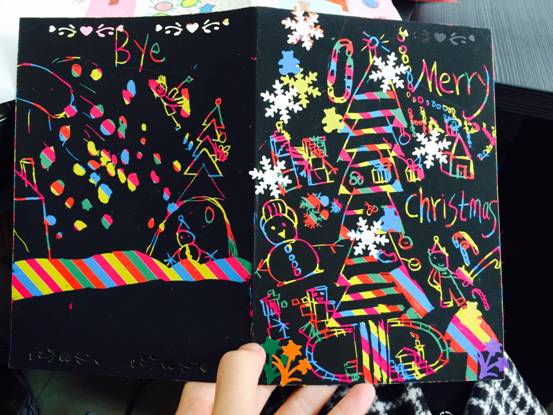 Bye
Merry
Christmas